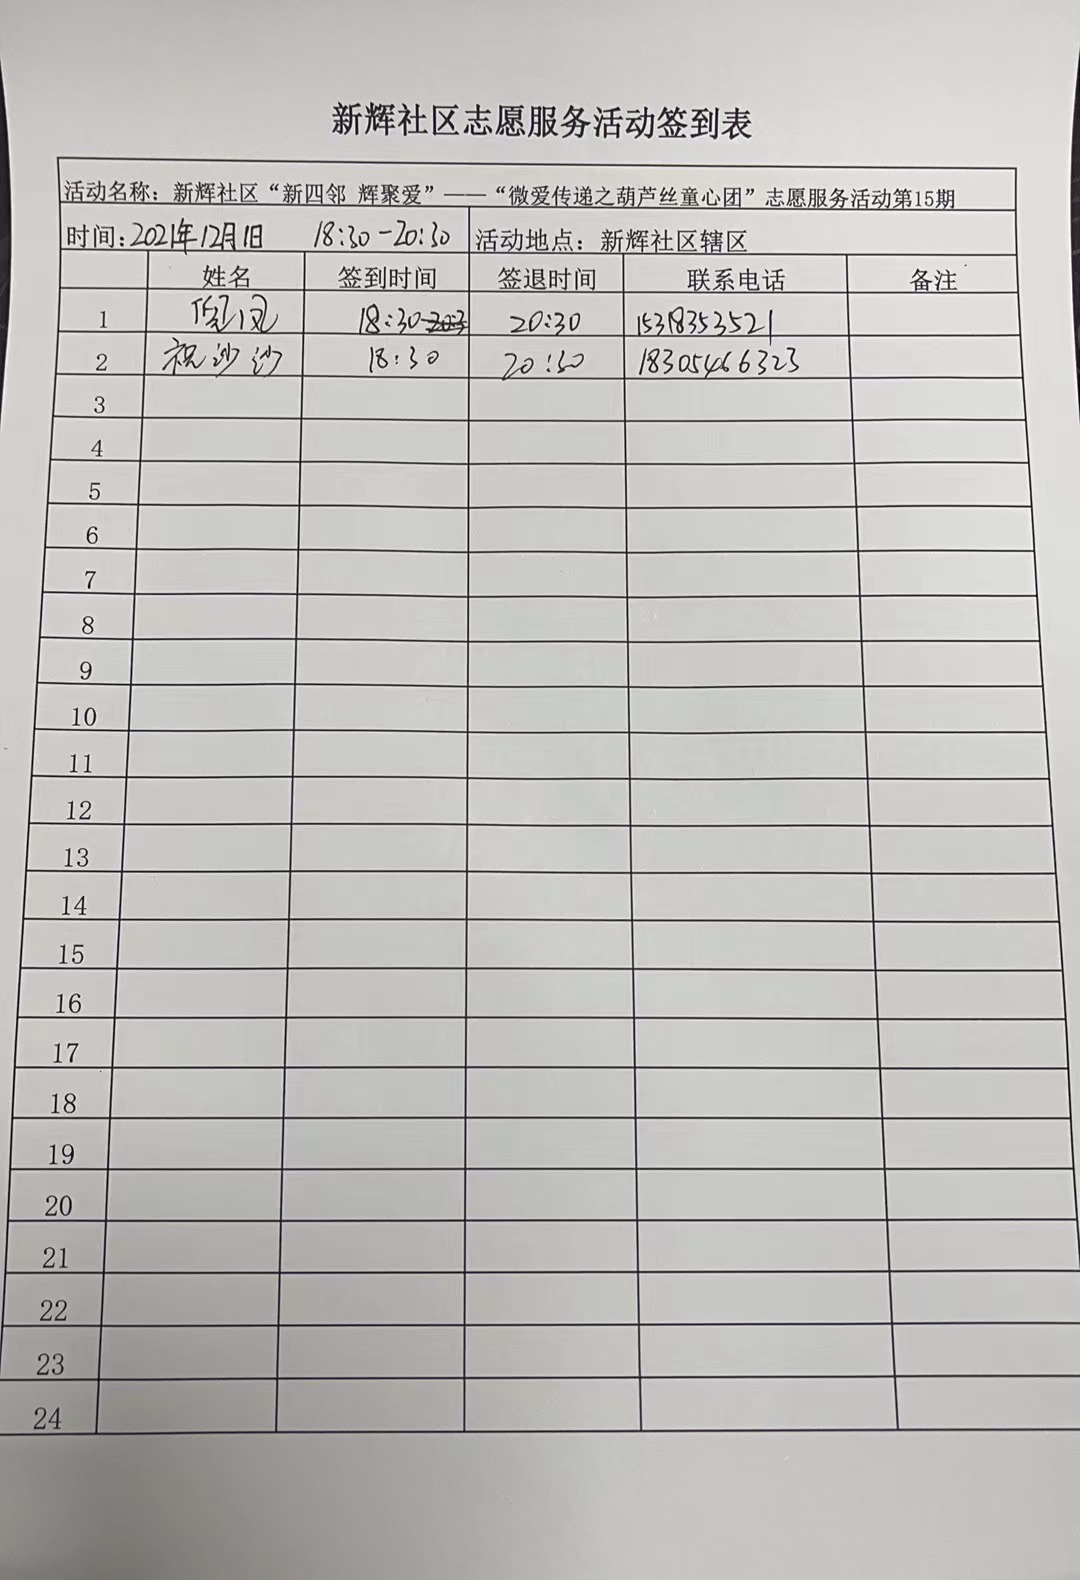 新辉社区志愿服务活动签到表
活动名称：新辉社区“新四邻 辉聚爱”——“微爱传递之葫芦丝童心团”志愿服务活动第15期
时间：2021年12月1日 18:30-20:30 活动地点：新辉社区辖区
姓名 签到时间 签退时间 联系电话 备注
1 倪凤 18:30 20:30 15318353521
2 祝沙沙 18:30 20:30 18305466323
3
4
5
6
7
8
9
10
11
12
13
14
15
16
17
18
19
20
21
22
23
24